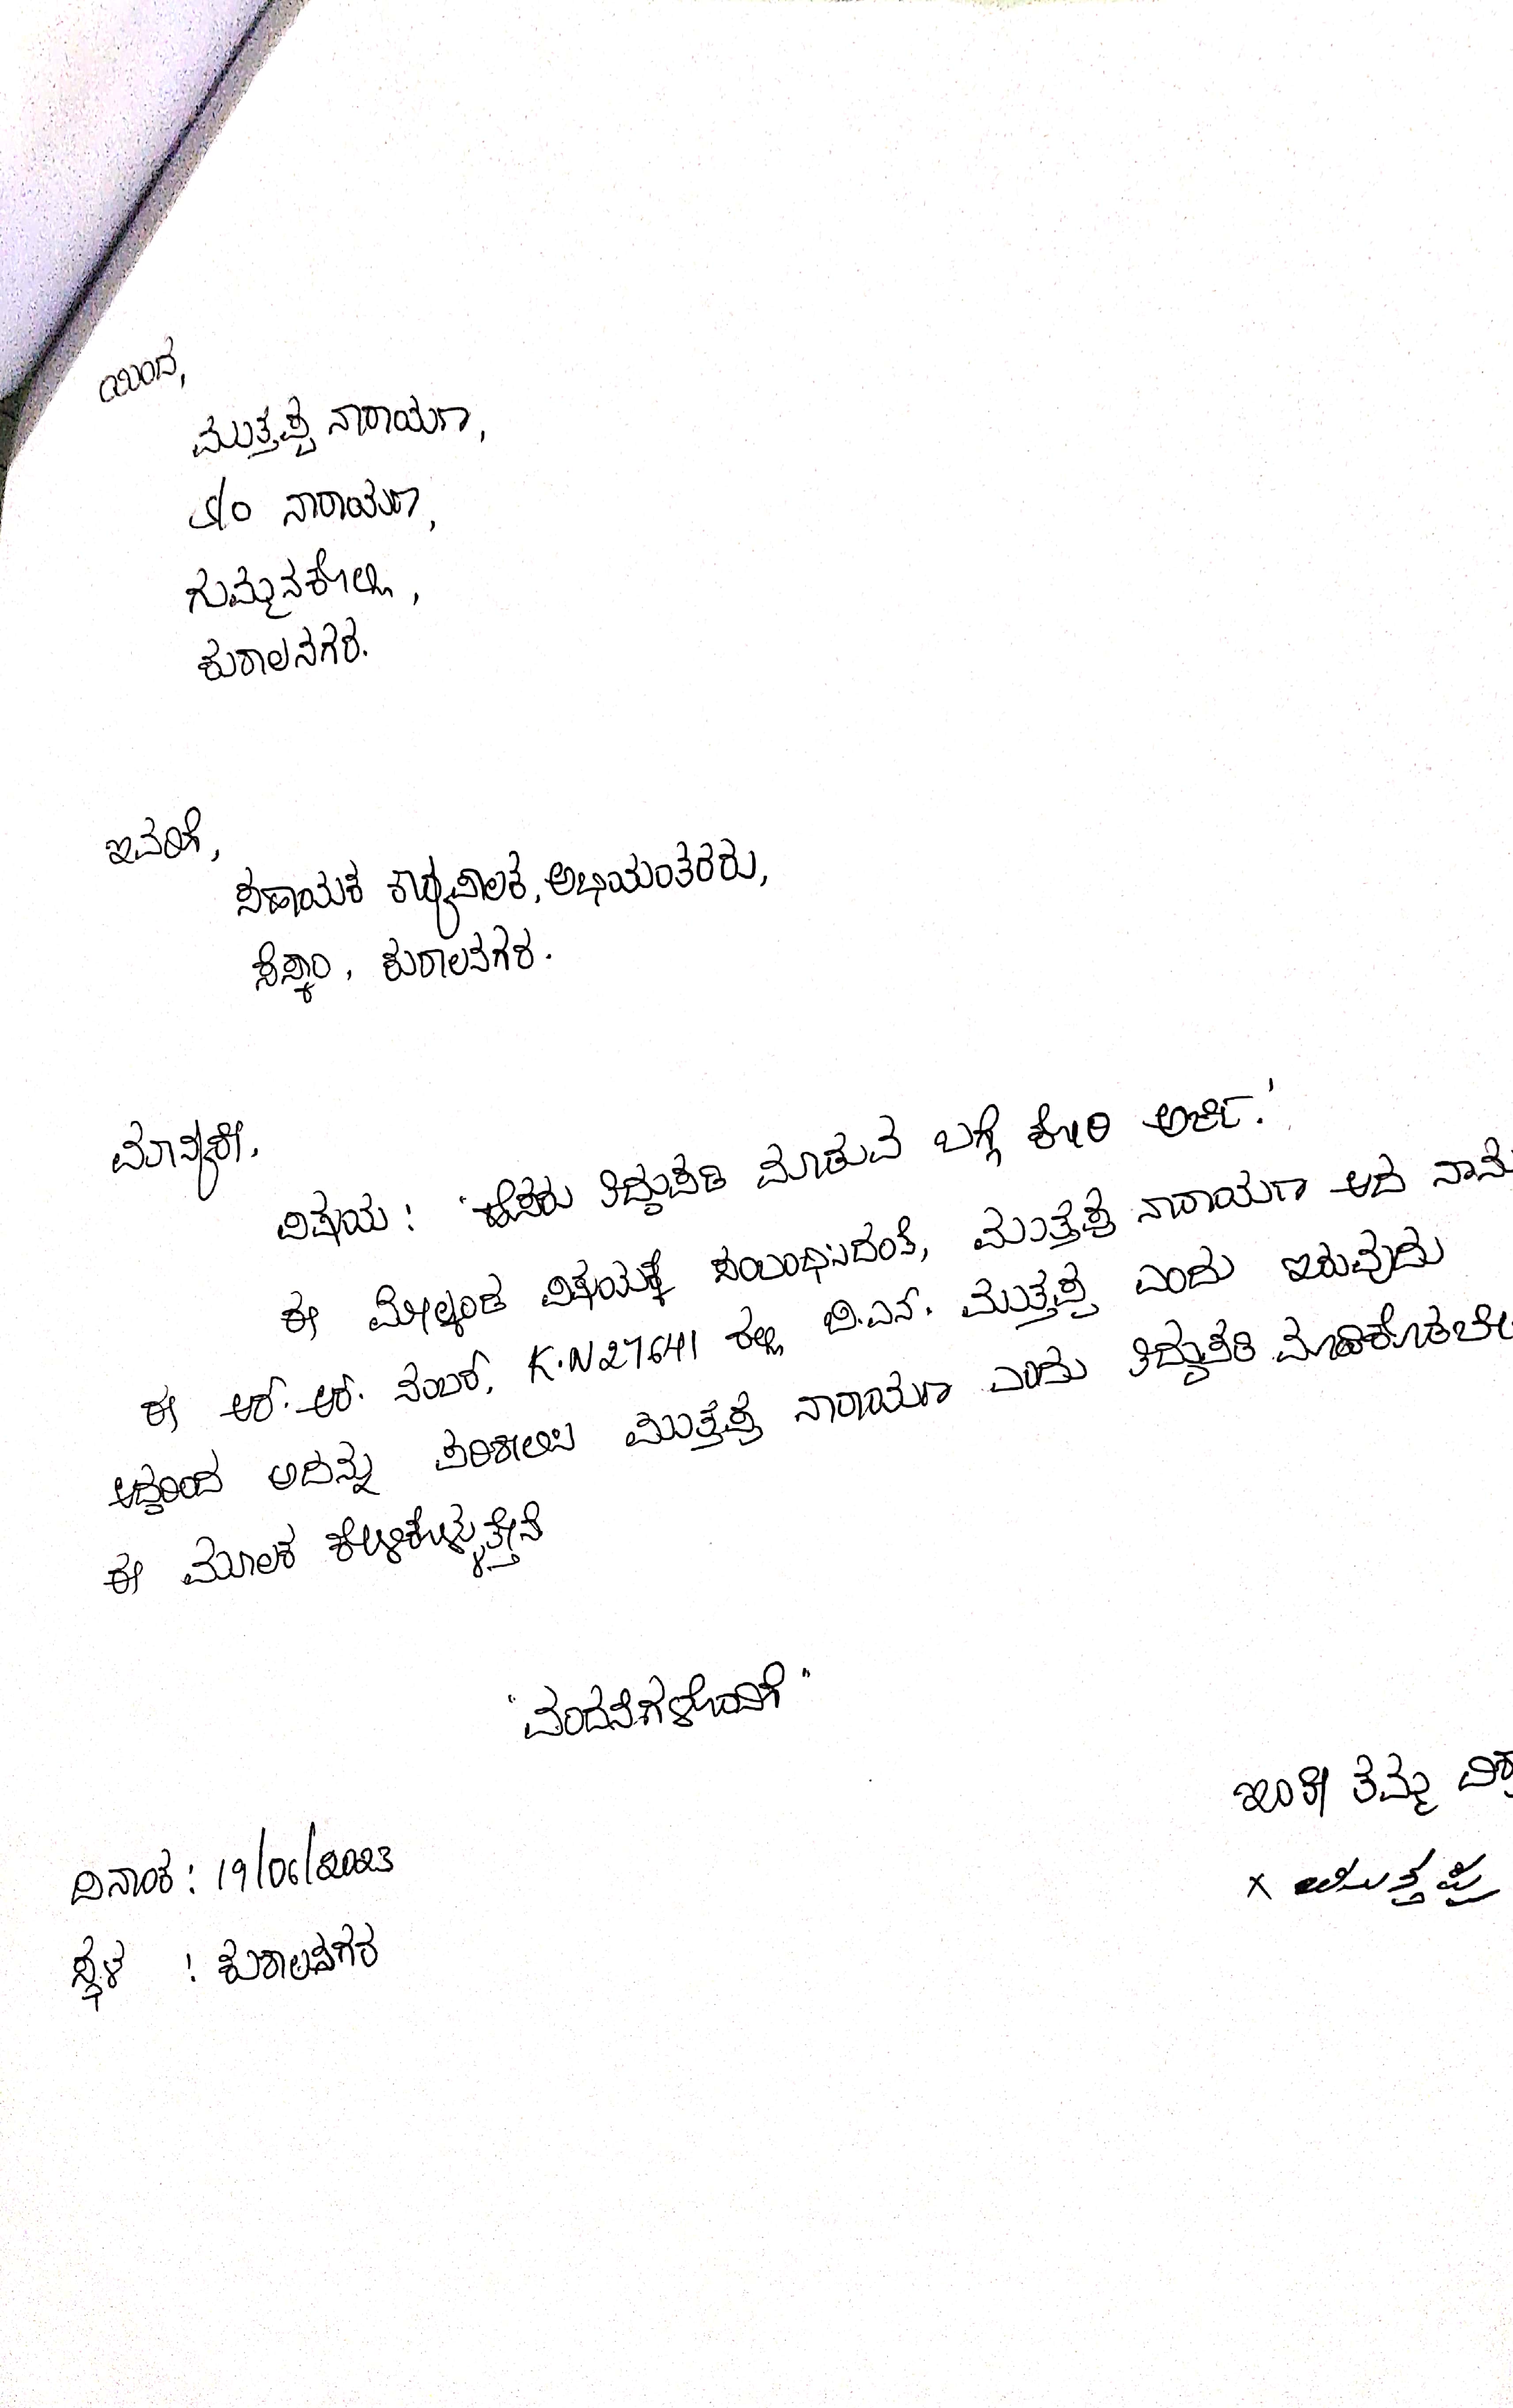 ಯಿಂದ,
ಮುತ್ತಪ್ಪ ನಾರಾಯಣ,
S/o ನಾರಾಯಣ,
ಗುಮ್ಮನಕೊಲ್ಲಿ,
ಕುಶಾಲನಗರ.
ಇವರಿಗೆ,
ಸಹಾಯಕ ಕಾರ್ಯಪಾಲಕ, ಅಭಿಯಂತರರು,
ಸೆಸ್ಕಾಂ, ಕುಶಾಲನಗರ.
ಮಾನ್ಯರೇ,
ವಿಷಯ: "ಹೆಸರು ತಿದ್ದುಪಡಿ ಮಾಡುವ ಬಗ್ಗೆ ಕೋರಿ ಅರ್ಜಿ."
ಈ ಮೇಲ್ಕಂಡ ವಿಷಯಕ್ಕೆ ಸಂಬಂಧಿಸಿದಂತೆ, ಮುತ್ತಪ್ಪ ನಾರಾಯಣ ಆದ ನಾನು
ಈ ಆರ್.ಆರ್. ನಂಬರ್, K.N27641 ರಲ್ಲಿ ಬಿ.ಎನ್. ಮುತ್ತಪ್ಪ ಎಂದು ಇರುವುದು
ಆದ್ದರಿಂದ ಅದನ್ನು ಪರಿಶೀಲಿಸಿ ಮುತ್ತಪ್ಪ ನಾರಾಯಣ ಎಂದು ತಿದ್ದುಪಡಿ ಮಾಡಿಕೊಡಬೇ
ಈ ಮೂಲಕ ಕೇಳಿಕೊಳ್ಳುತ್ತೇನೆ
"ವಂದನೆಗಳೊಂದಿಗೆ"
ಇಂತಿ ತಮ್ಮ
x ಮುತ್ತಪ್ಪ
ದಿನಾಂಕ: 19/06/2023
ಸ್ಥಳ : ಕುಶಾಲನಗರ